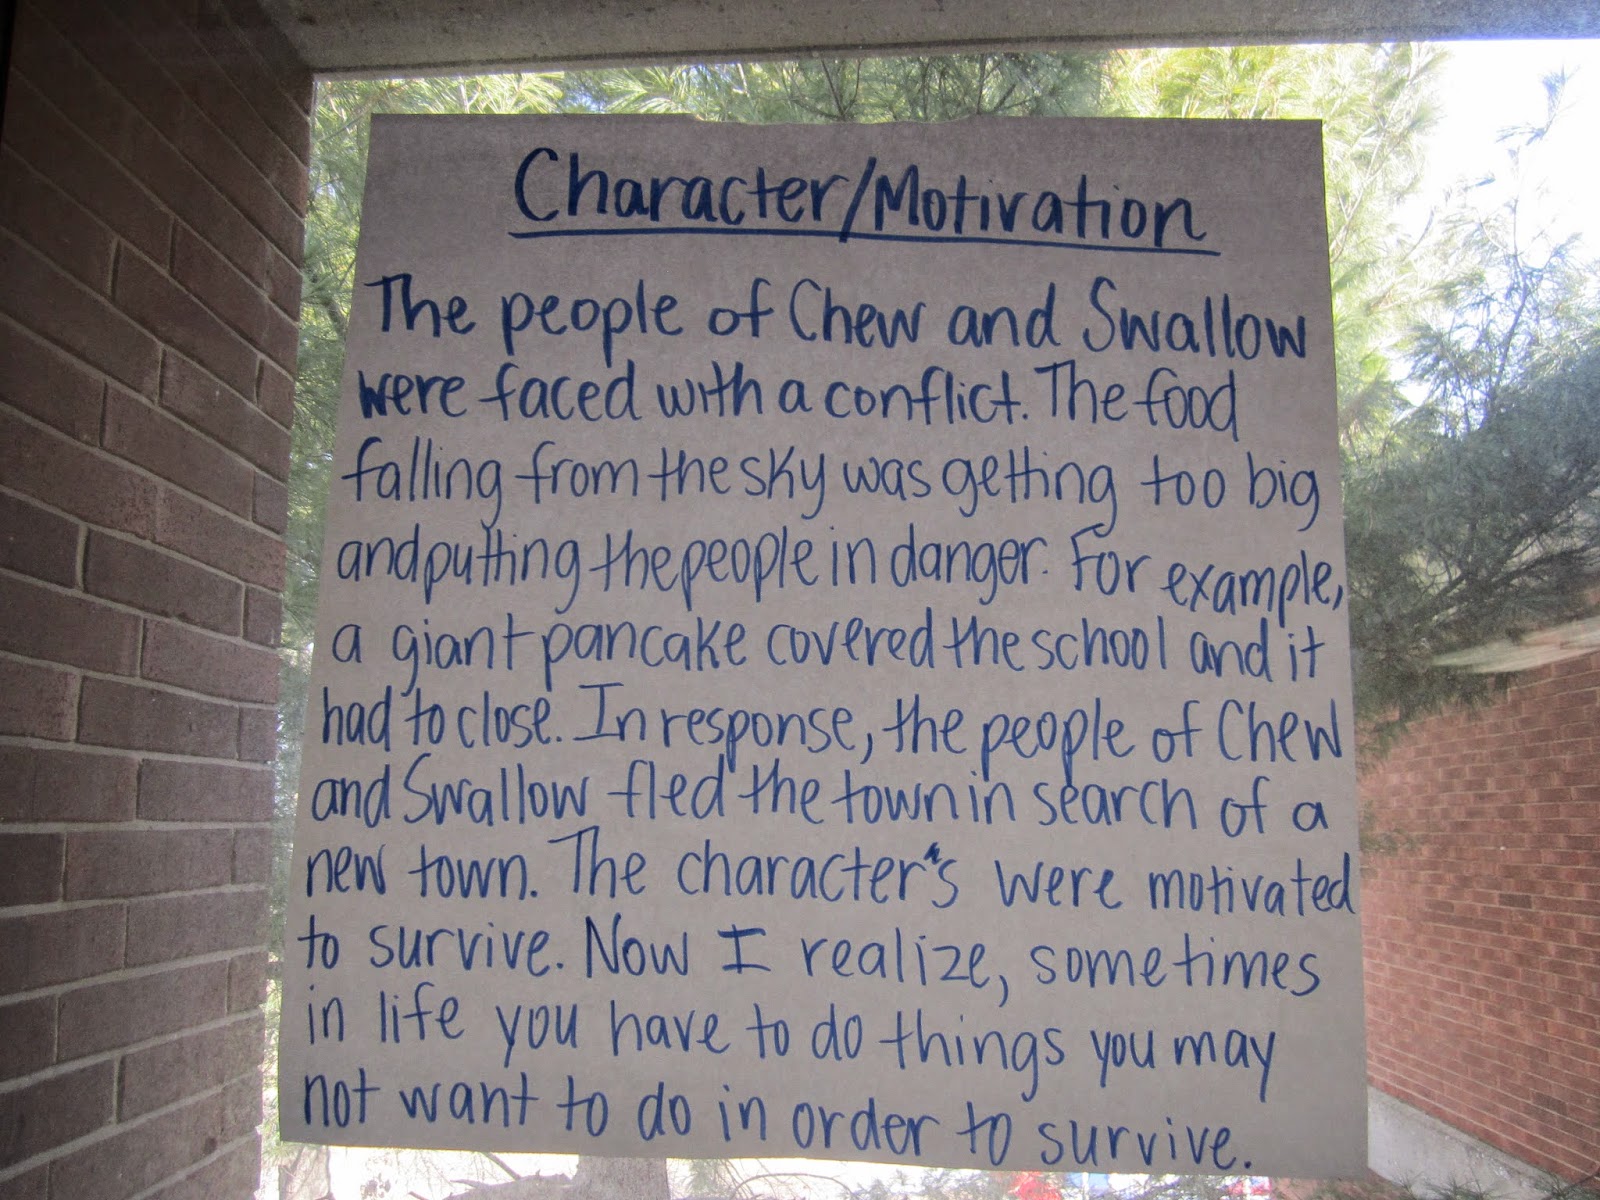 Character/Motivation
The people of Chew and Swallow
were faced with a conflict. The food
falling from the sky was getting too big
and putting the people in danger. For example,
a giant pancake covered the school and it
had to close. In response, the people of Chew
and Swallow fled the town in search of a
new town. The character's were motivated
to survive. Now I realize, sometimes
in life you have to do things you may
not want to do in order to survive.